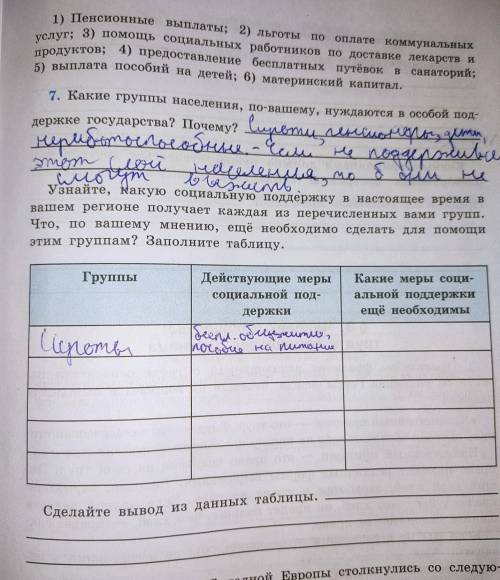 1) Пенсионные выплаты; 2) льготы по оплате коммунальных
услуг; 3) помощь социальных работников по доставке лекарств и
продуктов; 4) предоставление бесплатных путёвок в санаторий;
5) выплата пособий на детей; 6) материнский капитал.
7. Какие группы населения, по-вашему, нуждаются в особой под-
держке государства? Почему? Сироты, пенсионеры, дети,
неработоспособные - Если не поддерживать
этот слой населения, то б они не
смогут выжить
Узнайте, какую социальную поддержку в настоящее время в
вашем регионе получает каждая из перечисленных вами групп.
Что, по вашему мнению, ещё необходимо сделать для помощи
этим группам? Заполните таблицу.
Группы
Действующие меры
социальной под-
держки
Какие меры соци-
альной поддержки
ещё необходимы
Сироты
беспл. общежитие,
пособие на питание
Сделайте вывод из данных таблицы.
Европы столкнулись со следую-